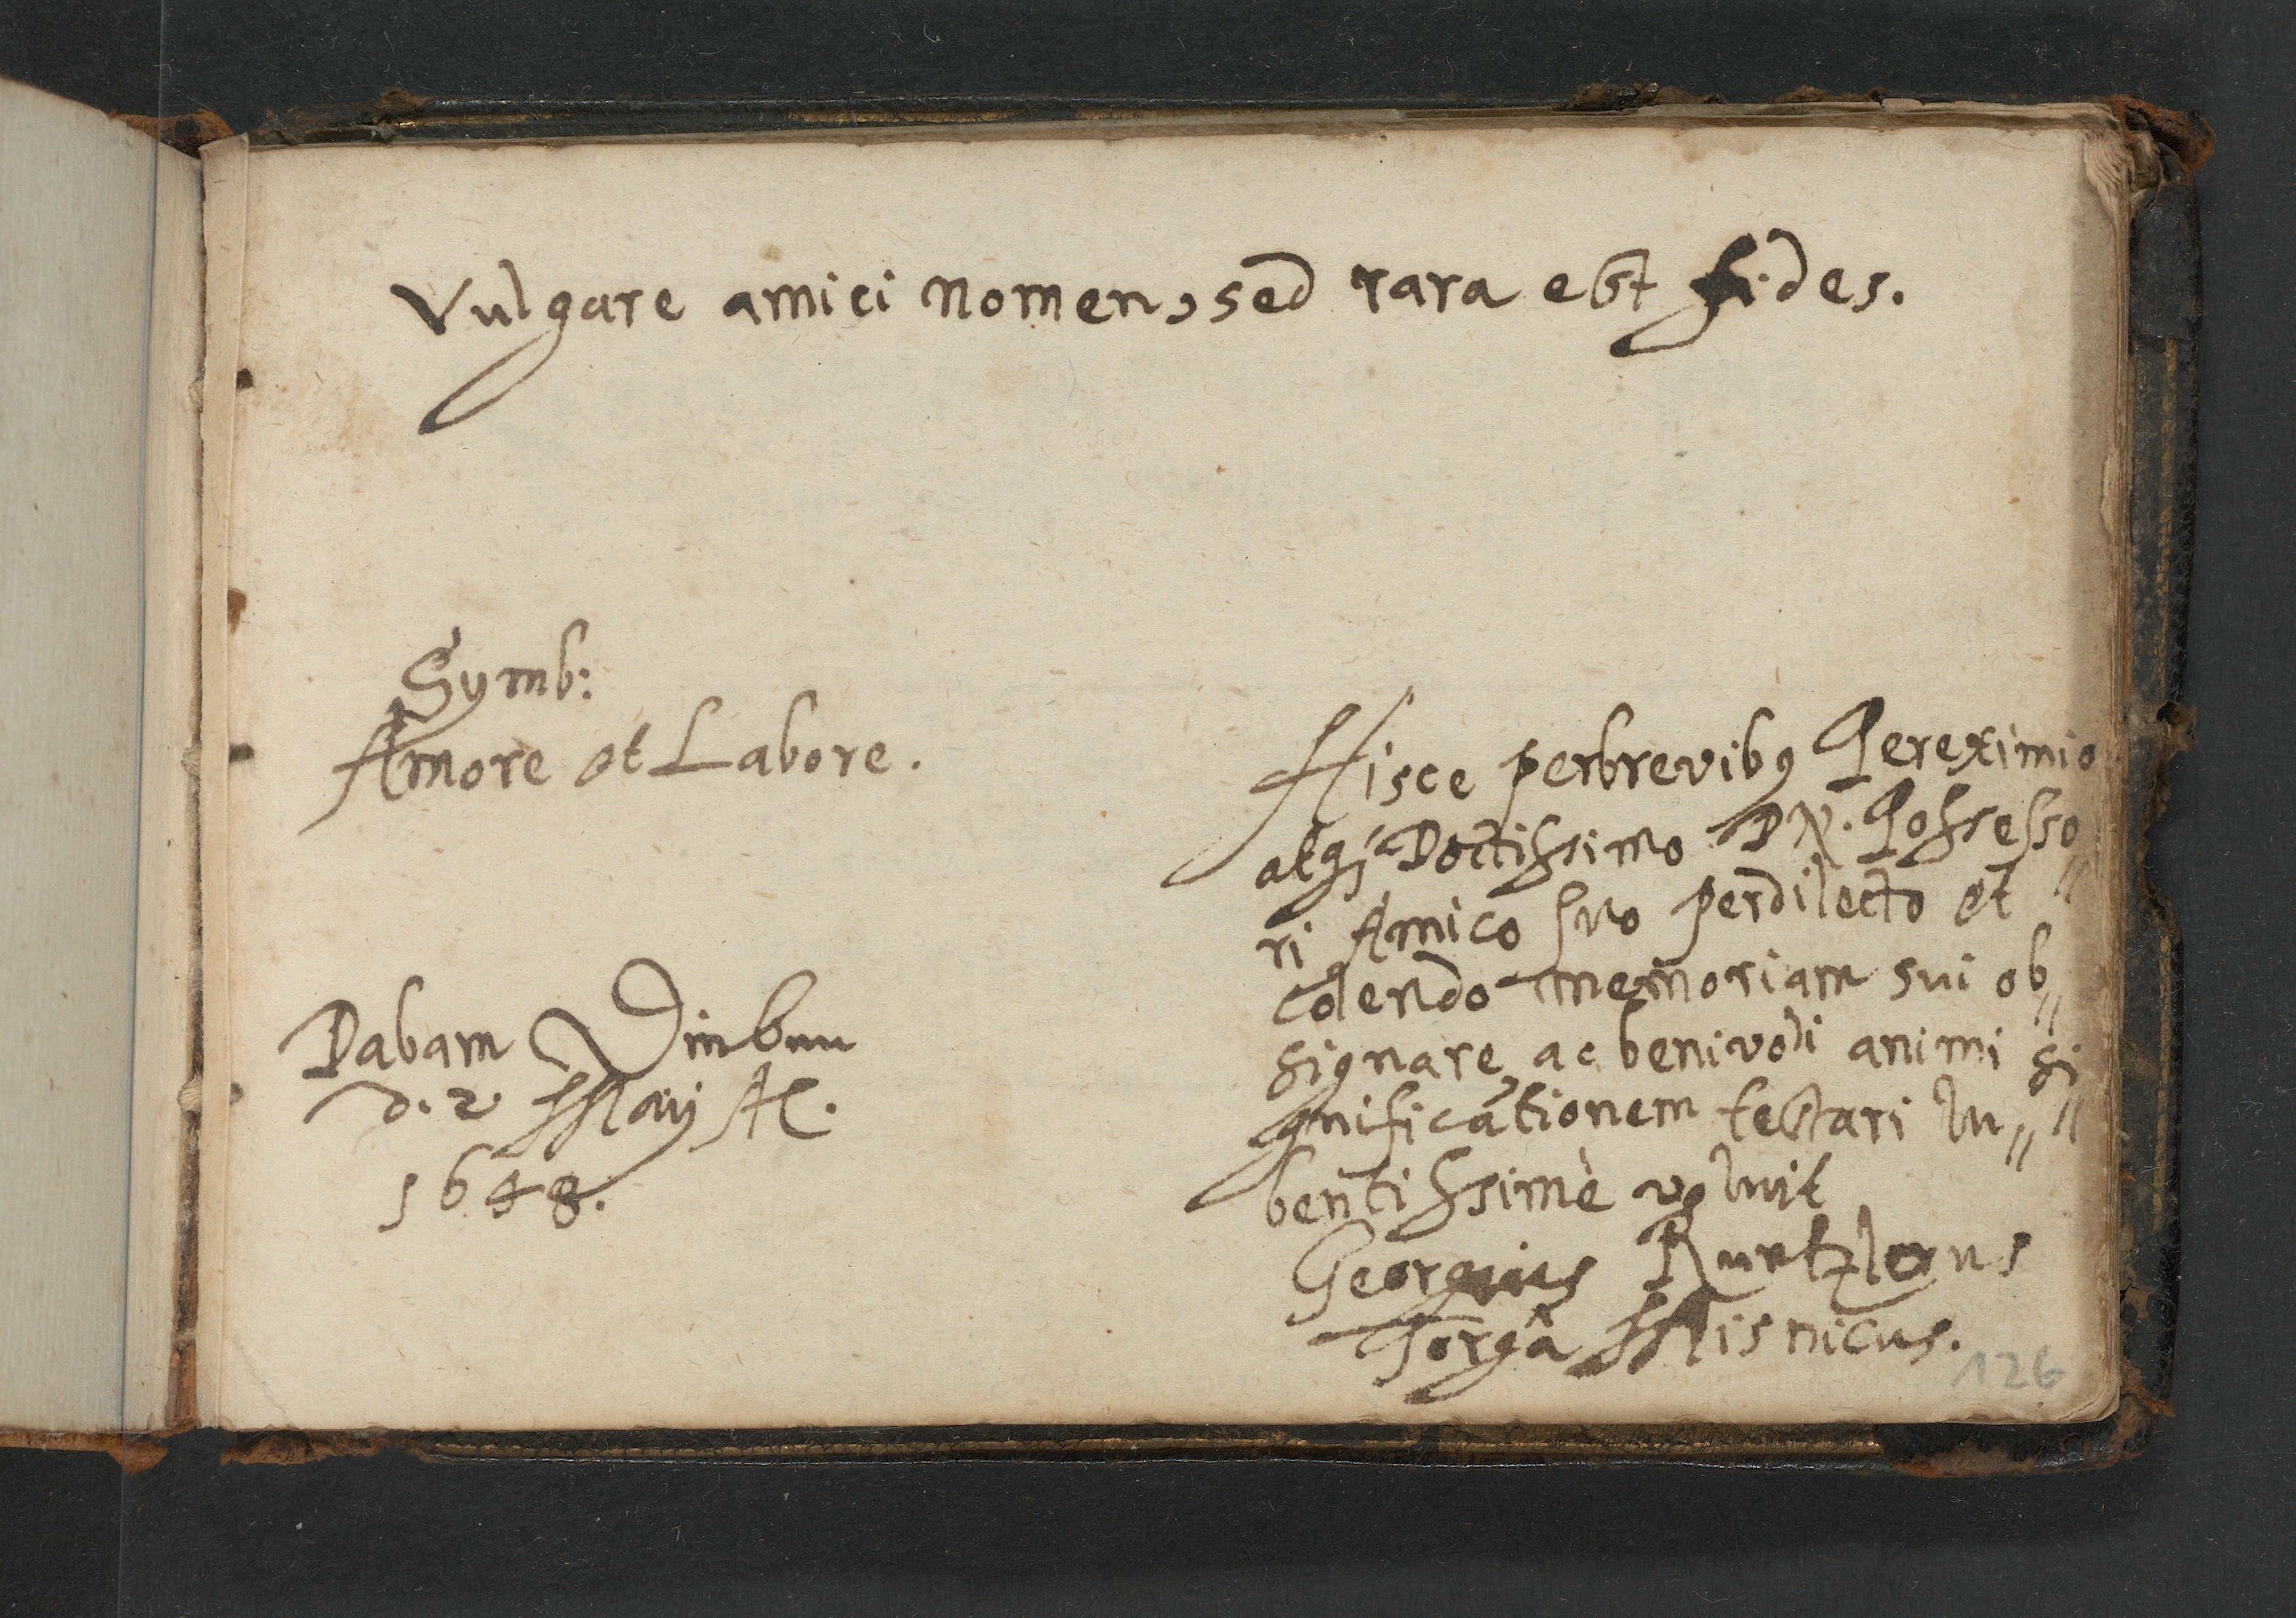 Vulgare amici nomen, sed rara est fides.
Symb:
Amore et Labore.
Dabam
d. 2. Maij Aõ.
1648.
Hisce perbrevibꝯ Pereximio
atqꝫ Doctissimo DN. Possesso„
ri Amico suo perdilecto et
colendo memoriam sui ob„
signare, ac benivoli animi si„
gnificationem testari lu„
bentissimè voluit
Georgius
Torgâ Misnicus.
126